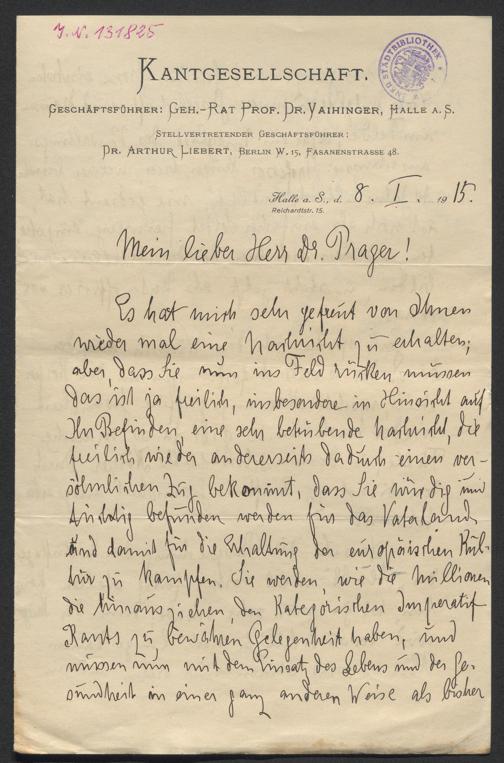 J. N. 131825
STADTBIBLIOTHEK
KANTGESELLSCHAFT.
GESCHÄFTSFÜHRER: GEH.-RAT PROF. DR. VAIHINGER, HALLE A. S.
STELLVERTRETENDER GESCHÄFTSFÜHRER:
DR. ARTHUR LIEBERT, BERLIN W. 15, FASANENSTRASSE 48.
Halle a. S., d. 8. I. 1915.
Reichardtstr. 15.
Mein lieber Herr Dr. Prager!
Es hat mich sehr gefreut von Ihnen
wieder mal eine Nachricht zu erhalten;
aber, dass Sie nun ins Feld rücken müssen
das ist ja freilich, insbesondere in Hinsicht auf
Ihr Befinden, eine sehr betrübende Nachricht, die
freilich wieder andererseits dadurch einen ver-
söhnlichen Zug bekommt, dass Sie würdig und
tüchtig befunden werden für das Vaterland
und damit für die Erhaltung der europäischen Kul-
tur zu kämpfen. Sie werden, wie die Millionen
die hinausziehen, den Kategorischen Imperatif
Kants zu bewähren Gelegenheit haben, und
müssen nun mit dem Einsatz des Lebens und der Ge-
sundheit in einer ganz anderen Weise als bisher